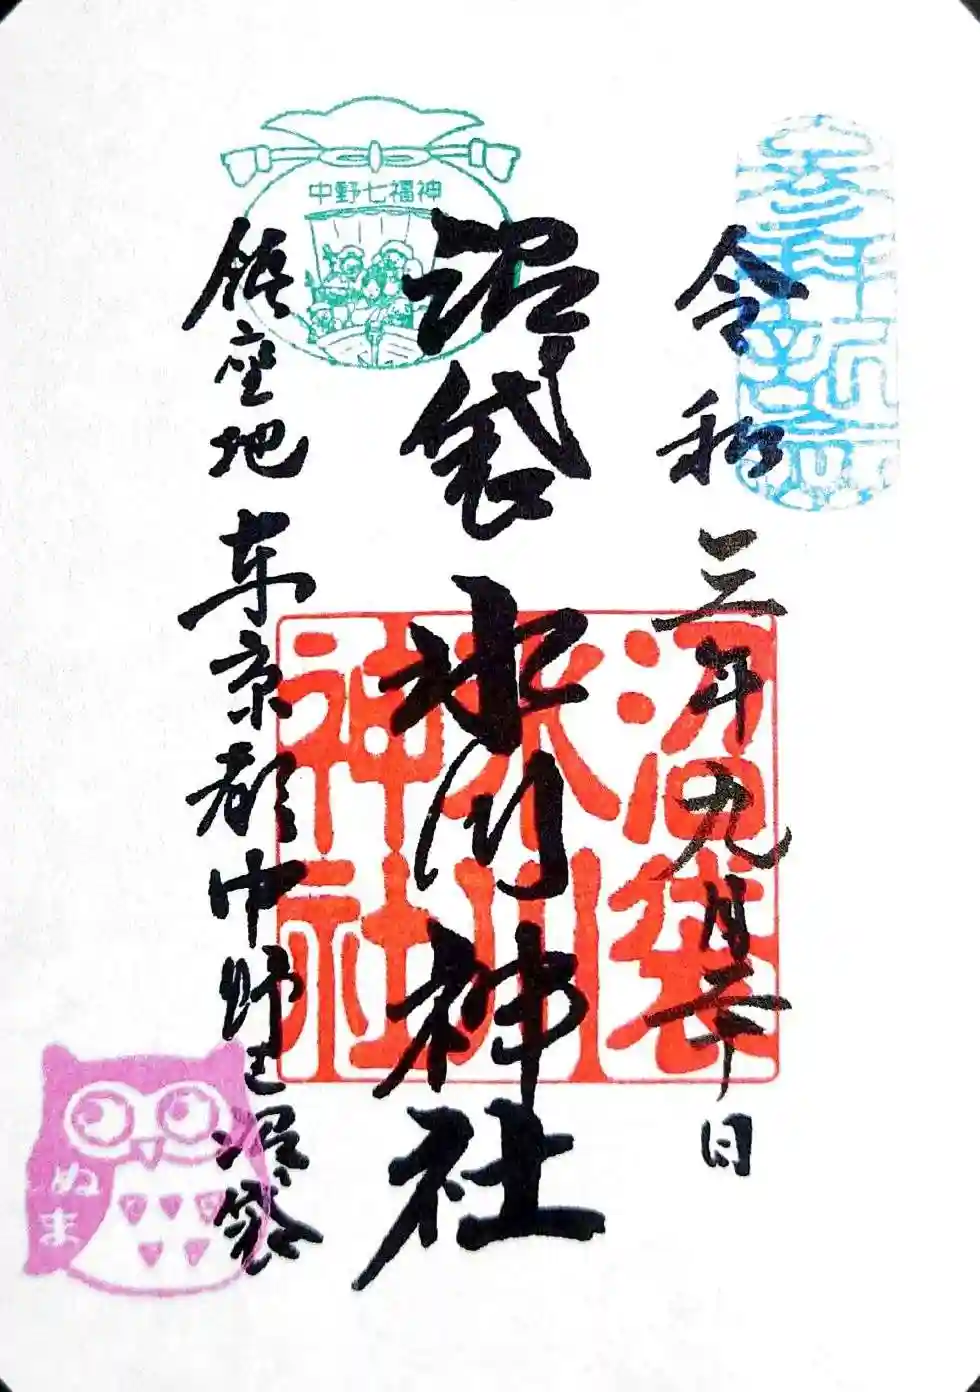 参拝祈念
令和三年九月二十日
中野七福神
沼袋氷川神社
沼袋氷川神社
鎮座地東京都中野区沼袋
ぬま